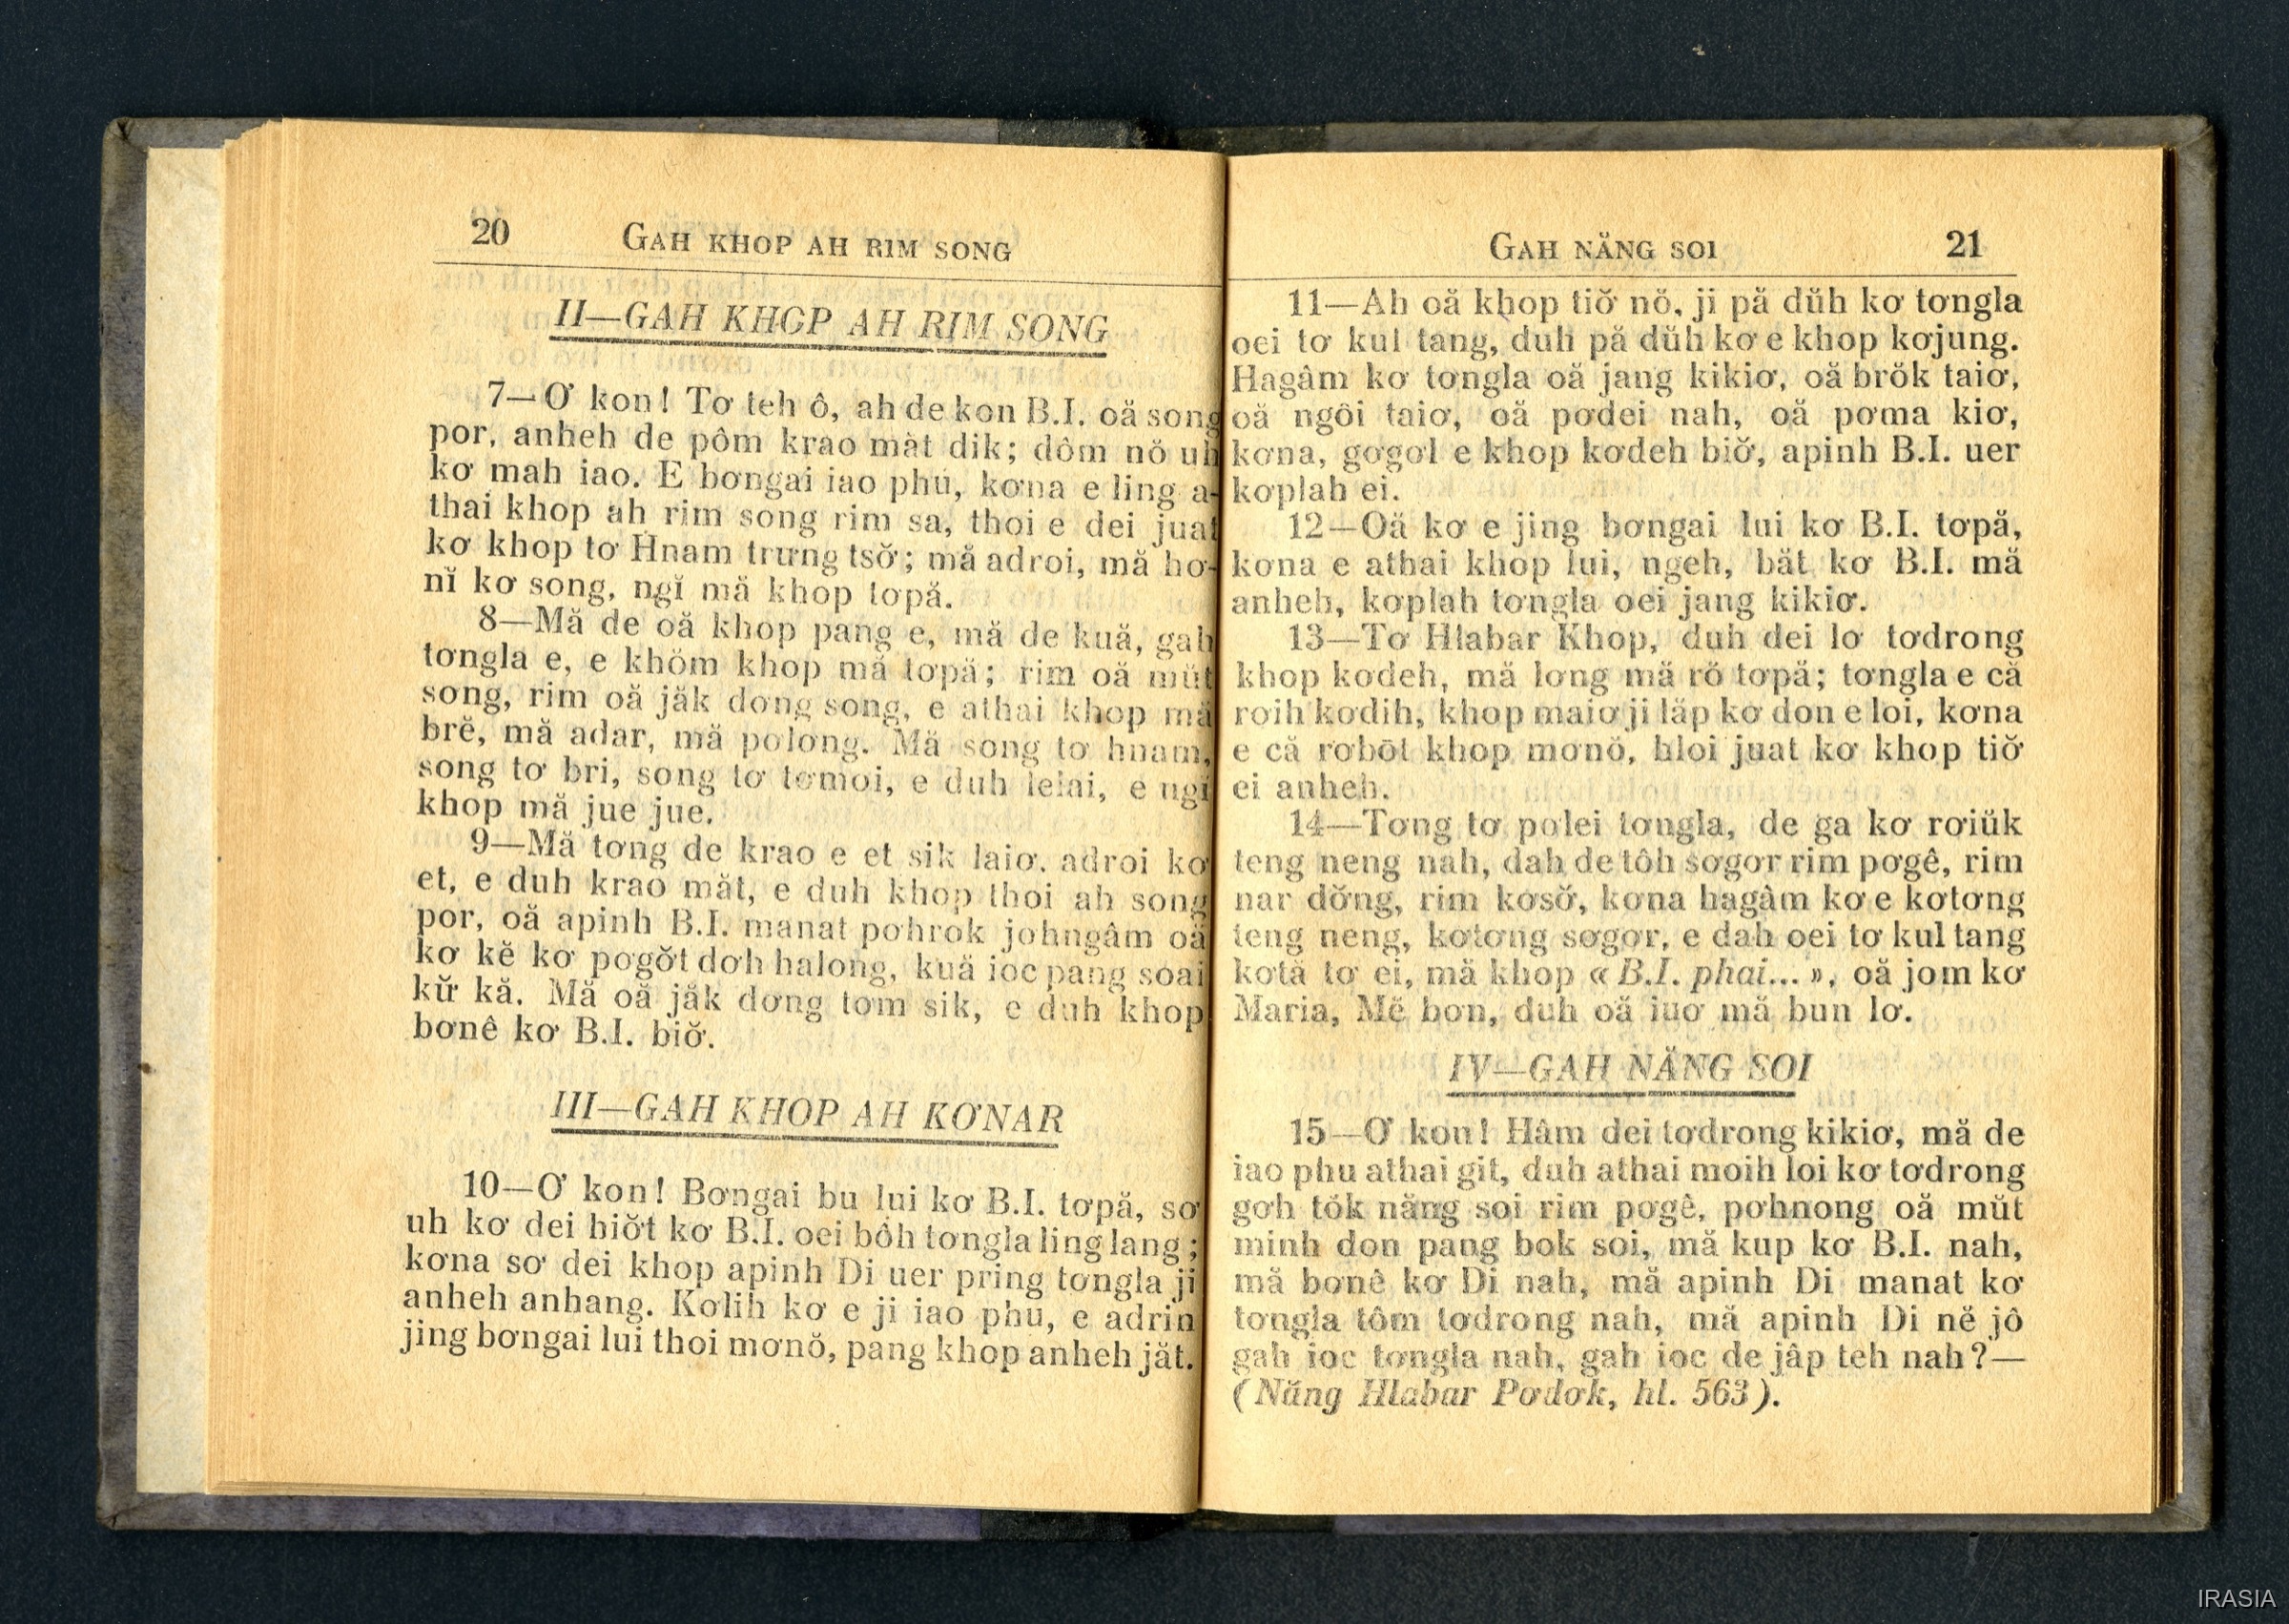 20 GAH KHOP AH RIM SONG
II—GAH KHOP AH RIM SONG
7—Ơ kon! Tơ teh ô, ah de kon B.I. oă song
por, anheh de pôm krao măt dik; dôm nŏ uh
kơ mah iao. E bơngai iao phu, kơna e ling a-
thai khop ah rim song rim sa, thoi e dei juat
kơ khop tơ Hnam trưng tsơ̆; mă adroi, mă hơ-
nĭ kơ song, ngĭ mă khop tơpă.
8—Mă de oă khop pang e, mă de kuă, gah
tơngla e, e khŏm khop mă tơpă; rim oă mŭt
song, rim oă jăk dơng song, e athai khop mă
brĕ, mă adar, mă pơlơng. Mă song tơ hnam,
song tơ bri, song tơ tơmoi, e duh lelai, e ngĭ
khop mă jue jue.
9—Mă tơng de krao e et sik laiơ, adroi kơ
et, e duh krao măt, e duh khop thoi ah song
por, oă apinh B.I. manat pơhrok jơhngâm oă
kơ kĕ kơ pơgơ̆t dơh halong, kuă ioc pang soai
kư̆ kă. Mă oă jăk dơng tơm sik, e duh khop
bơnê kơ B.I. biơ̆.
III—GAH KHOP AH KƠNAR
10—Ơ kon! Bơngai bu lui kơ B.I. tơpă, sơ
uh kơ dei hiơ̆t kơ B.I. oei bôh tơngla ling lang;
kơna sơ dei khop apinh Di uer pring tơngla ji
anheh anhang. Kơlih kơ e ji iao phu, e adrin
jing bơngai lui thoi mơnŏ, pang khop anheh jăt.
GAH NĂNG SOI 21
11—Ah oă khop tiơ̆ nŏ, ji pă dŭh kơ tơngla
oei tơ kul tang, duh pă dŭh kơ e khop kơjung.
Hagâm kơ tơngla oă jang kikiơ, oă brŏk taiơ,
oă ngôi taiơ, oă pơdei nah, oă pơma kiơ,
kơna, gơgơl e khop kơdeh biơ̆, apinh B.I. uer
kơplah ei.
12—Oă kơ e jing bơngai lui kơ B.I. tơpă,
kơna e athai khop lui, ngeh, băt kơ B.I. mă
anheh, kơplah tơngla oei jang kikiơ.
13—Tơ Hlabar Khop, duh dei lơ tơdrong
khop kơdeh, mă lơng mă rŏ tơpă; tơngla e că
rơih kơdih, khop maiơ ji lăp kơ don e loi, kơna
e că rơbŏt khop mơnŏ, hloi juat kơ khop tiơ̆
ei anheh.
14—Tơng tơ pơlei tơngla, de ga kơ rơiŭk
teng neng nah, dah de tôh sơgơr rim pơgê, rim
nar dơ̆ng, rim kơsơ̆, kơna hagâm kơ e kơtơng
teng neng, kơtơng sơgơr, e dah oei tơ kul tang
kơtă tơ ei, mă khop « B.I. phai... », oă jom kơ
Maria, Mĕ bơn, duh oă iuơ mă bun lơ.
IV—GAH NĂNG SOI
15—Ơ kon! Hâm dei tơdrong kikiơ, mă de
iao phu athai git, duh athai moih loi kơ tơdrong
gơh tŏk năng soi rim pơgê, pơhnong oă mŭt
minh don pang bok soi, mă kup kơ B.I. nah,
mă bơnê kơ Di nah, mă apinh Di manat kơ
tơngla tôm tơdrong nah, mă apinh Di nĕ jô
gah ioc tơngla nah, gah ioc de jâp teh nah?—
(Năng Hlabar Pơdơk, hl. 563).
IRASIA